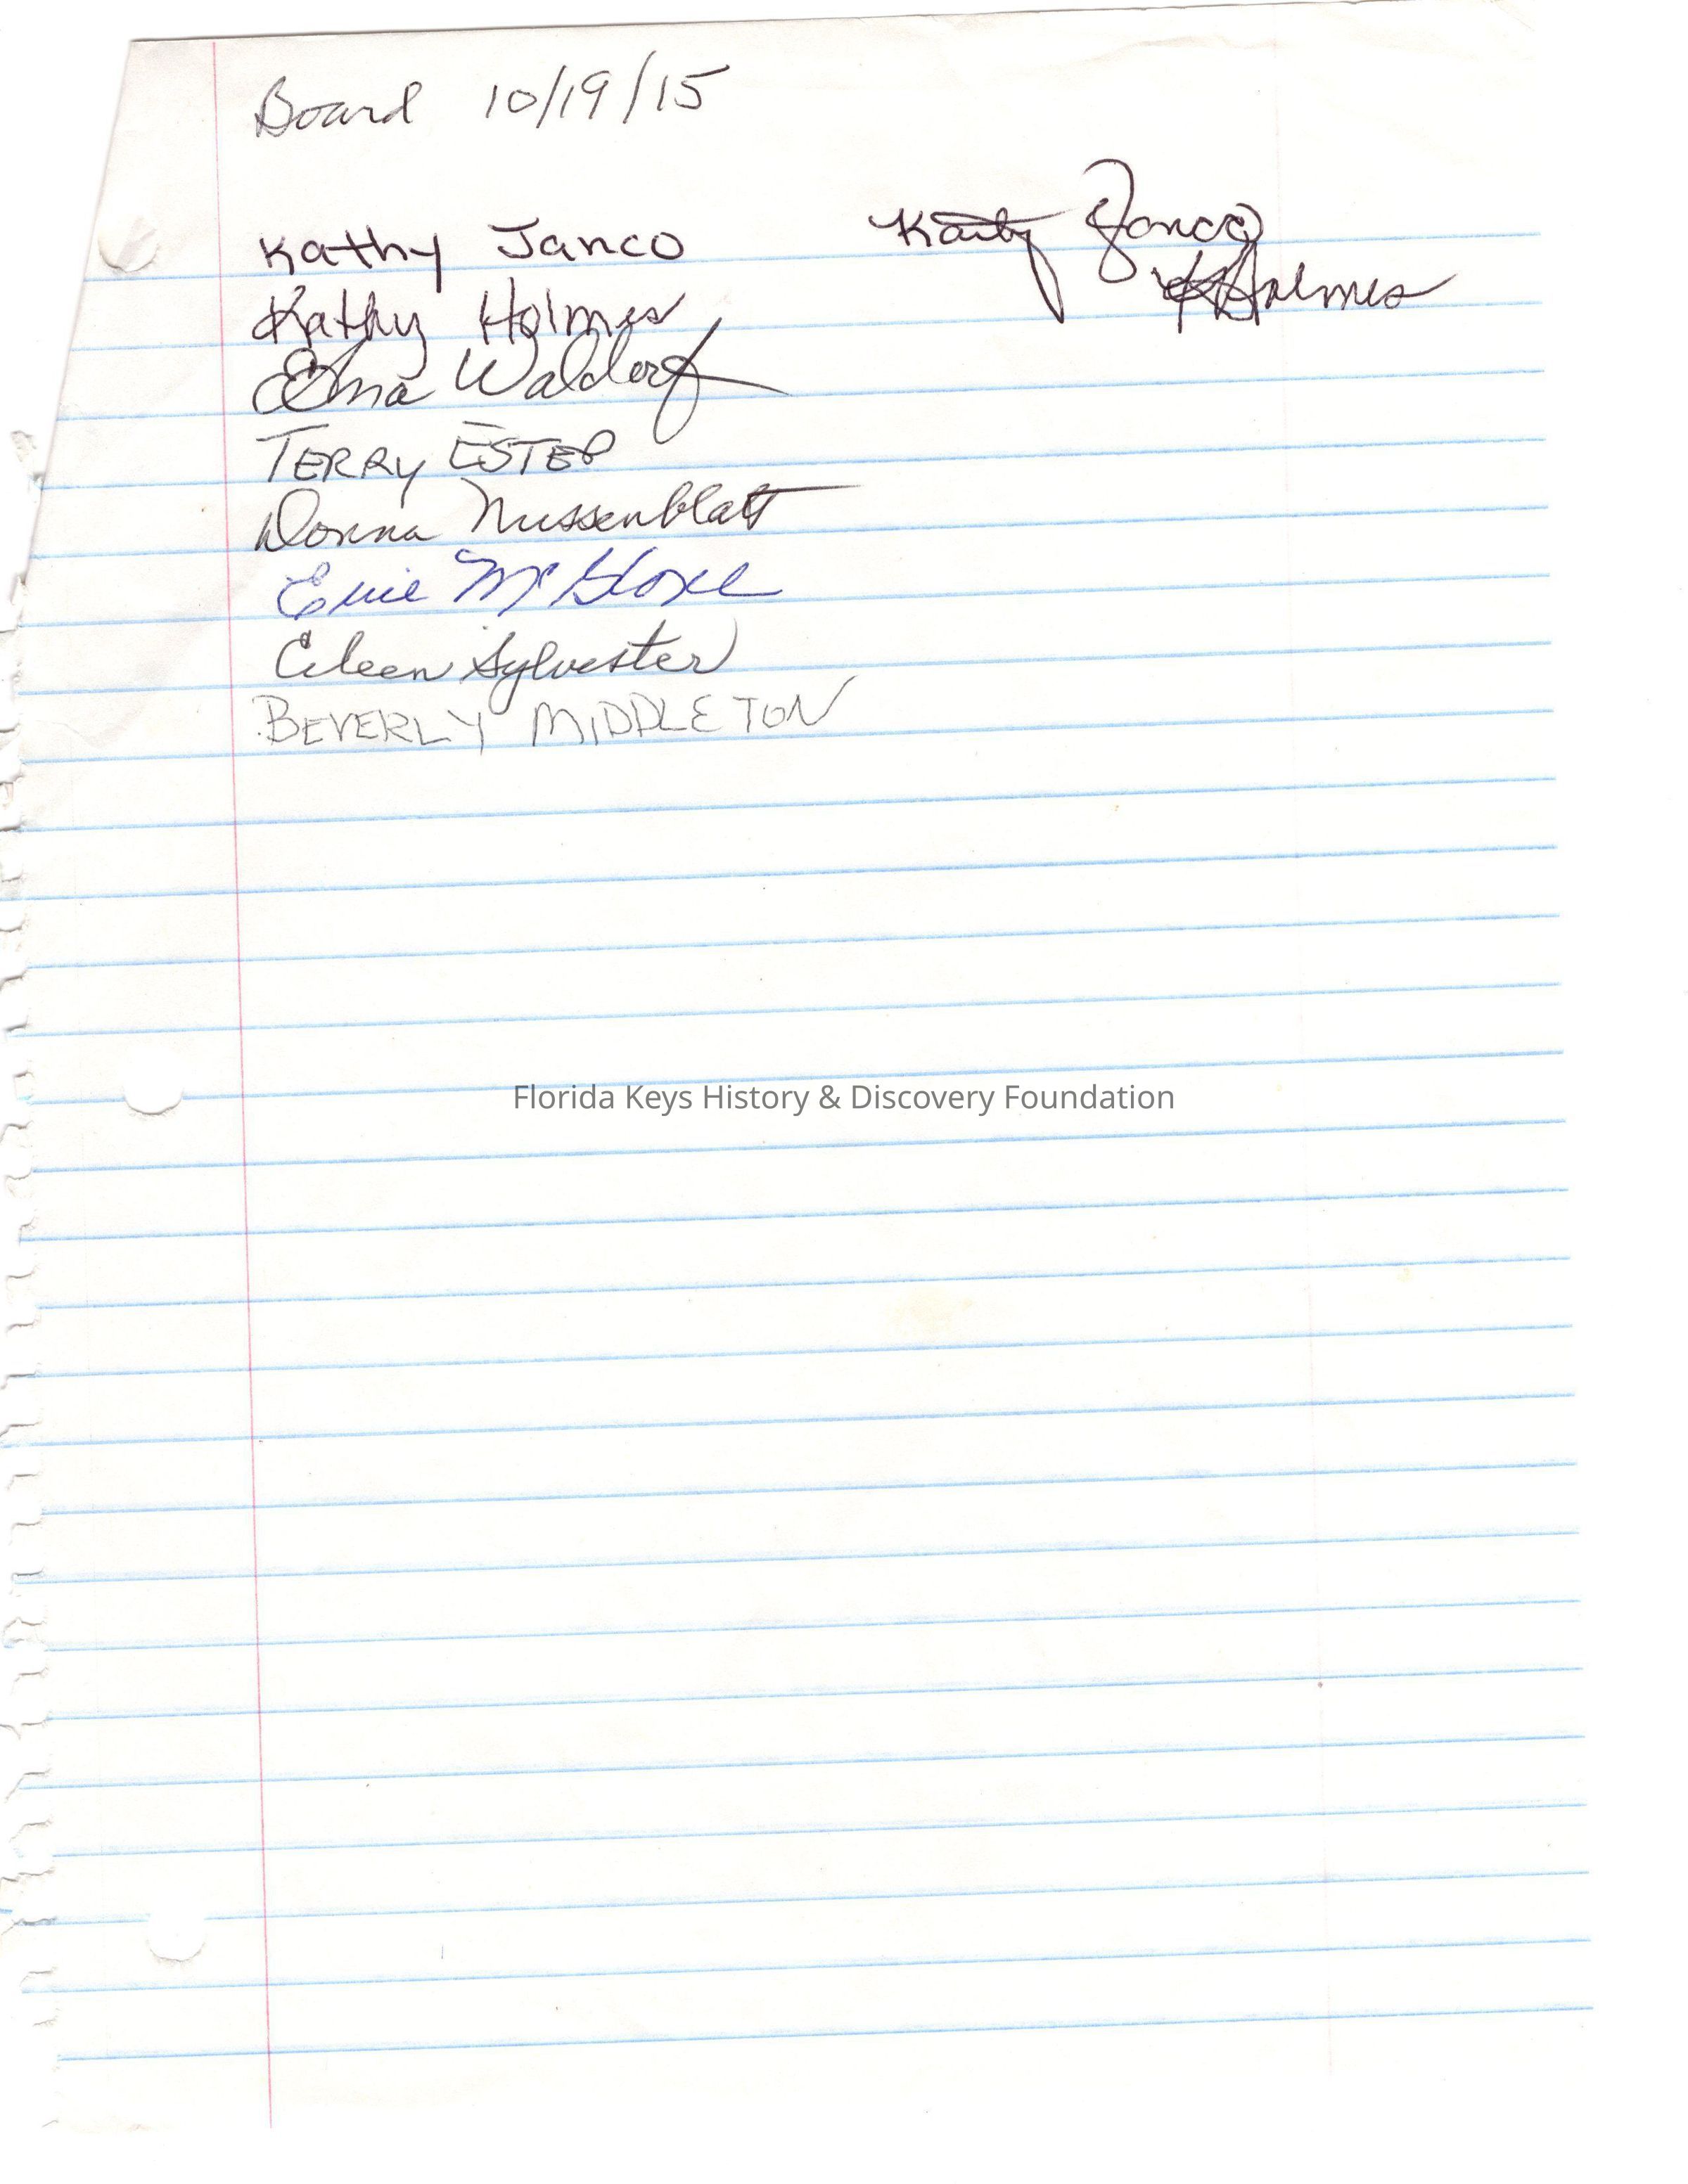 Board 10/19/15
Kathy Janco Kathy Janco
Kathy Holmes K Holmes
Edna Waldorf
TERRY ESTEP
Donna Nussenblatt
McGlone
Eileen Sylvester
BEVERLY MIDDLETON
Florida Keys History & Discovery Foundation